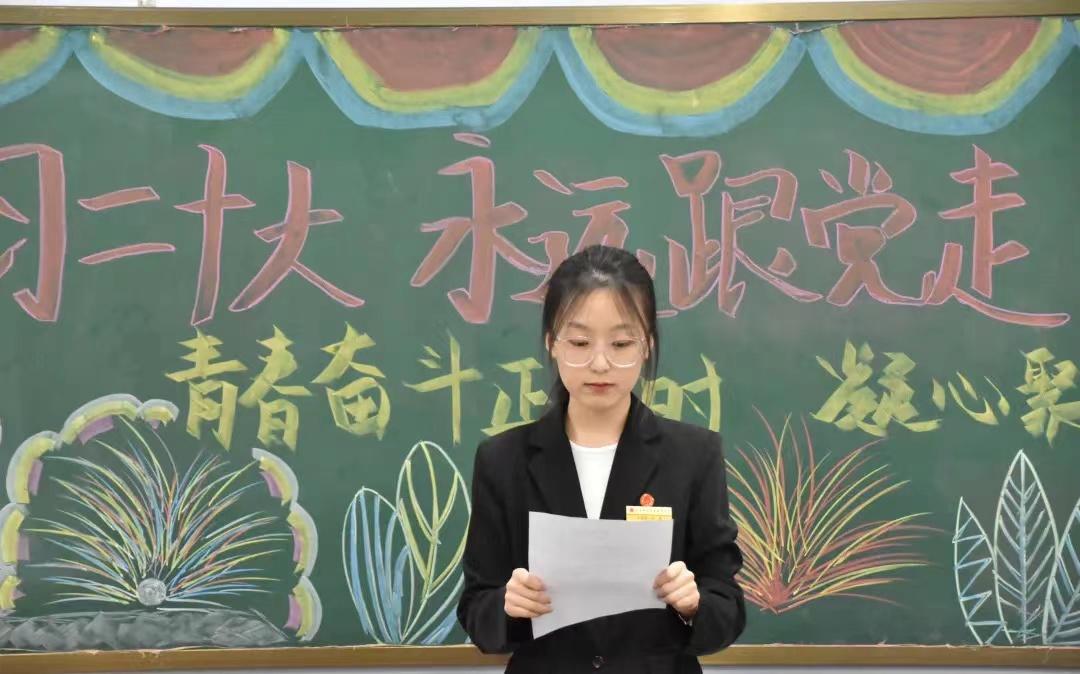 习二十大 永远跟党走
青春奋斗正 时 凝心聚